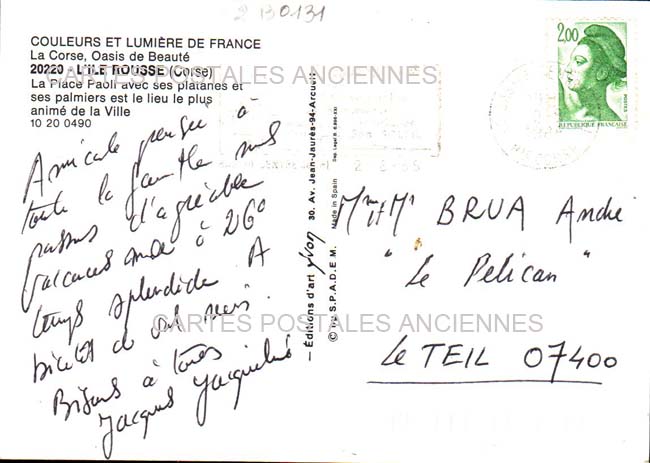 2 B0131
COULEURS ET LUMIÈRE DE FRANCE
La Corse, Oasis de Beauté
20220 - L'ILE ROUSSE (Corse)
La Place Paoli avec ses platanes et
ses palmiers est le lieu le plus
animé de la Ville
10 20 0490
CARTES POSTALES ANCIENNES
Amicale pensée à
toute la famille nous
passons d'agréable
vacances mer à 26°
temps splendide A
bientôt
Bisous à tous
Jacques Jacqueline
— Editions d'art Yvon 30, Av. Jean-Jaurès-94-Arcueil
© by S.P.A.D.E.M. Made in Spain
2,00
REPUBLIQUE FRANÇAISE
POSTES
Mme et Mr BRUA André
"Le Pélican"
CARTES POSTALES ANCIENNES
Le TEIL 07400